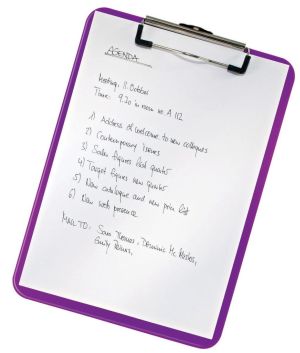 AGENDA
Meeting, 11. October
Time: 9.30 in room no. A 112
1) Address of welcome to new colleagues
2) Contemporary issues
3) Sales figures last quarter
4) Target figures new quarter
5) New catalogue and new price list
6) New web presence
MAIL TO: Sara Thomas, Dominic Mc
Emily